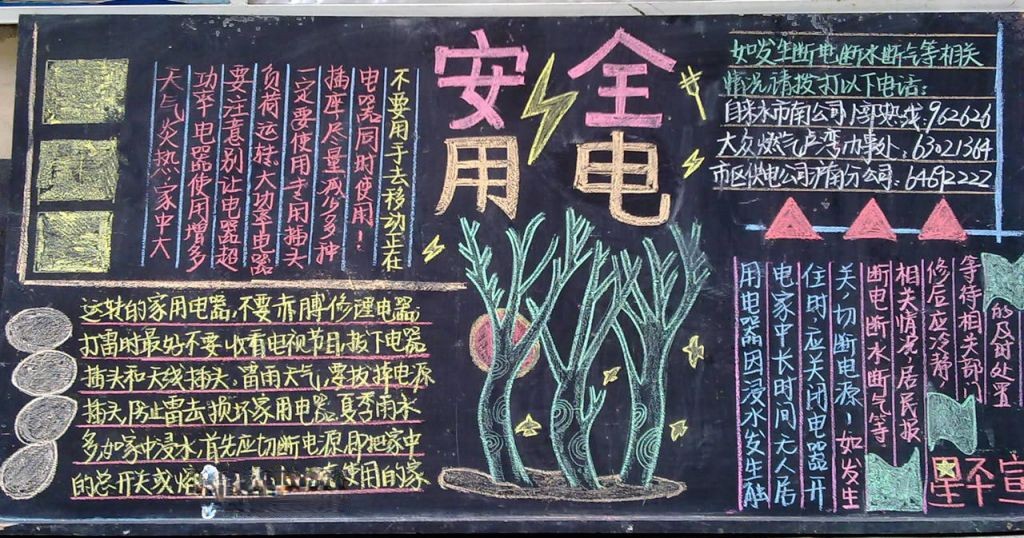 安全
用电
天气炎热,家中大
功率电器使用增多
要注意别让电器超
负荷运转.大功率电器
一定要使用专用插头
插座尽量减少多种
电器同时使用!
不要用手去移动正在
运转的家用电器,不要赤膊修理电器,
打雷时最好不要收看电视节目,拔下电器
插头和天线插头,雷雨天气,要拔掉电源
插头,防止雷击损坏家用电器.夏季雨水
多,如家中浸水,首先应切断电源,即把家中
的总开关或熔 使用的家
用电器因浸水发生触
电家中长时间无人居
住时,应关闭电器开
关,切断电源!如发生
断电断水断气等
相关情况,居民报
修后应冷静,
等待相关部门
的及时处置
如发生断电断水断气等相关
情况请拨打以下电话:
自来水市南公司小郭热线:962626
大众燃气卢湾办事处:63021364
市区供电公司沪南分公司:64692222